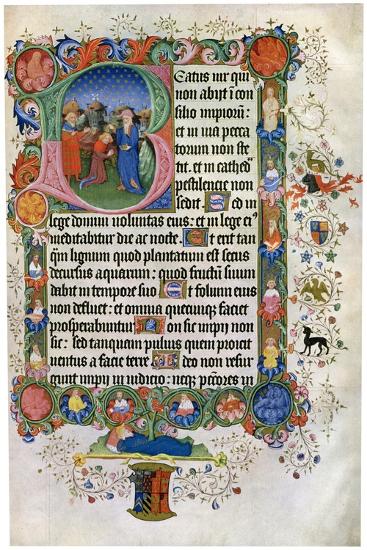 Eatus uir qui
non abijt i con
silio impiorum:
et in uia pecca
torum non ste
tit: et in cathed
pestilencie non
sedit Sed in
lege domini uoluntas eius: et in lege ei
meditabitur die ac nocte Et erit tan
qm lignum quod plantatum est secus
decursus aquarum: quod fructu suum
dabit in tempore suo Et folium eius
non defluet: et omnia quecunqz faciet
prosperabuntur Non sic impij non
sic: sed tanquam puluis quem proicit
uentus a facie terre Ideo non resur
gunt impij in iudicio: neqz pctores in